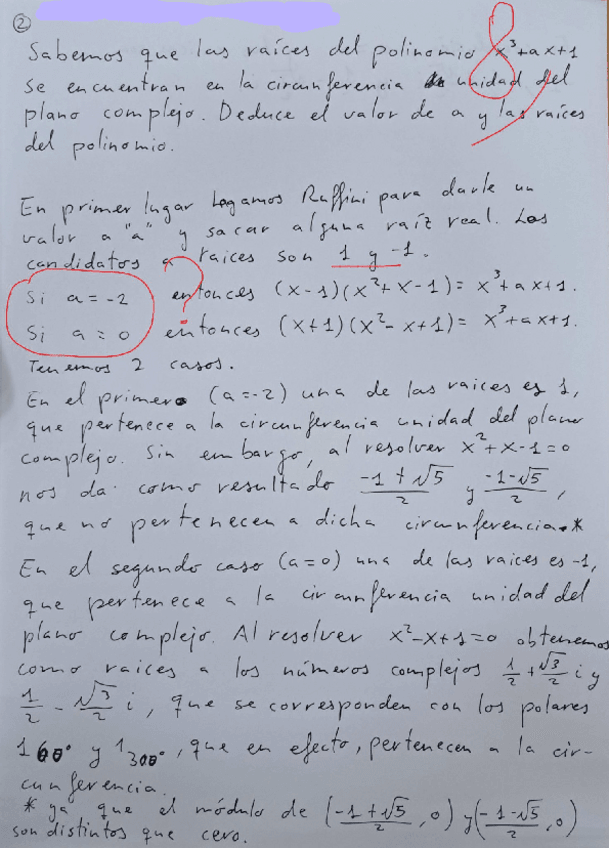 ②
Sabemos que las raíces del polinomio x³+ax+1
se encuentran en la circunferencia unidad del
plano complejo. Deduce el valor de a y las raíces
del polinomio.
En primer lugar hagamos Ruffini para darle un
valor a "a" y sacar alguna raíz real. Los
candidatos a raices son 1 y -1.
Si a = -2 entonces (x-1)(x²+x-1) = x³+ax+1.
Si a = 0 entonces (x+1)(x²-x+1) = x³+ax+1.
?
Tenemos 2 casos.
En el primero (a=-2) una de las raices es 1,
que pertenece a la circunferencia unidad del plano
complejo. Sin embargo, al resolver x²+x-1=0
nos da como resultado (-1+√5)/2 y (-1-√5)/2,
que no pertenecen a dicha circunferencia.*
En el segundo caso (a=0) una de las raices es -1,
que pertenece a la circunferencia unidad del
plano complejo. Al resolver x²-x+1=0 obtenemos
como raices a los números complejos 1/2 + √3/2 i y
1/2 - √3/2 i, que se corresponden con los polares
1 60° y 1 300°, que en efecto, pertenecen a la cir-
cunferencia.
* ya que el módulo de ((-1+√5)/2, 0) y ((-1-√5)/2, 0)
son distintos que cero.